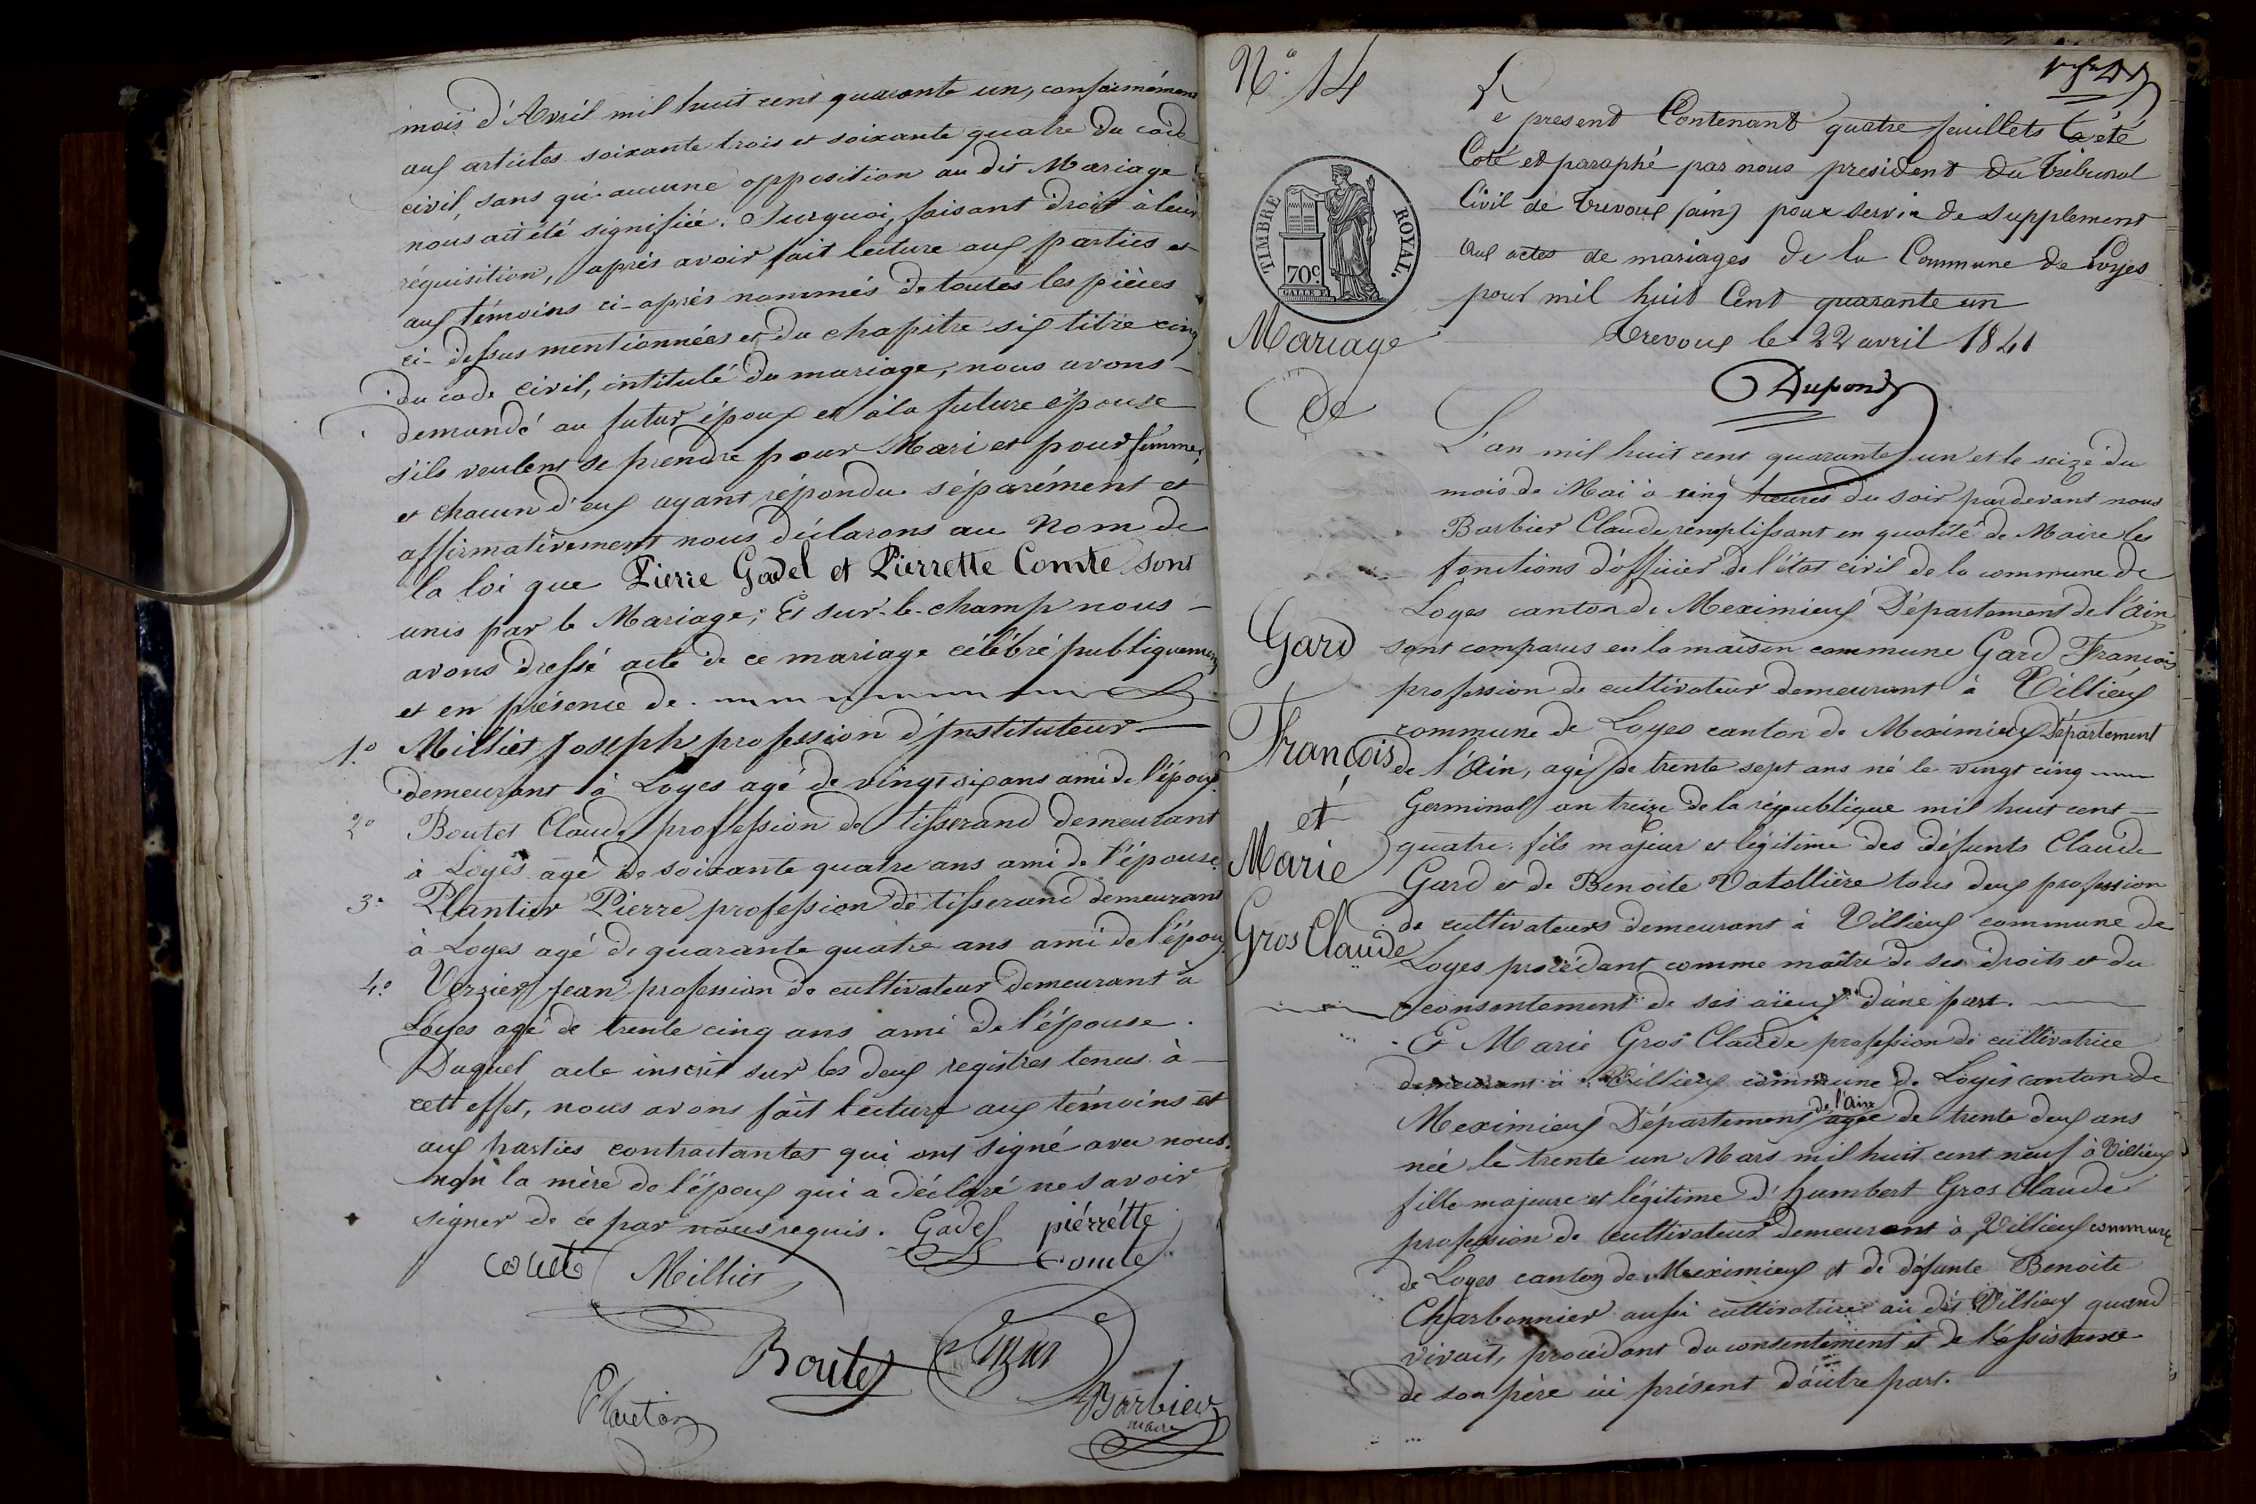 mois d'Avril mil huit cent quarante un, conformément
aux articles soixante trois et soixante quatre du code
civil, sans qu'aucune opposition au dit Mariage
nous ait été signifiée. Surquoi, faisant droit à leur
réquisition, après avoir fait lecture aux parties et
aux témoins ci-après nommés de toutes les pièces
ci-dessus mentionnées et du chapitre six titre cinq
du code civil, intitulé du mariage, nous avons
demandé au futur époux et à la future épouse
s'ils veulent se prendre pour Mari et pour femme,
et chacun d'eux ayant répondu séparément et
affirmativement nous déclarons au Nom de
la loi que Pierre Gadel et Pierrette Comte sont
unis par le Mariage; Et sur-le-champ nous
avons dressé acte de ce mariage célébré publiquement
et en présence de
1.º Milliet Joseph profession d'Instituteur
demeurant à Loyes agé de vingt six ans ami de l'époux
2º Boutet Claude profession de tisserand demeurant
à Loyes agé de soixante quatre ans ami de l'épouse
3º Plantier Pierre profession de tisserand demeurant
à Loyes agé de quarante quatre ans ami de l'époux
4.º Verzier Jean profession de cultivateur demeurant à
Loyes agé de trente cinq ans ami de l'épouse.
Duquel acte inscrit sur les deux registres tenus à
cett effet, nous avons fait lecture aux témoins et
aux parties contractantes qui ont signé avec nous,
non la mère de l'époux qui a déclaré ne savoir
signer de ce par nous requis. Gadel pierrette
Milliet comte
Boutet
Barbier
maire
Nº 14
Le present Contenant quatre feuillets a été
Coté et paraphé par nous president du tribunal
Civil de trevoux (ain) pour servir de supplement
aux actes de mariages de la Commune de Loyes
pour mil huit Cent quarante un
trevoux le 22 avril 1841
Dupond
TIMBRE ROYAL.
70c.
Mariage
de
Gard
François
et
Marie
Gros Claude
L'an mil huit cent quarante un et le seize du
mois de Mai à cinq heures du soir pardevant nous
Barbier Claude remplissant en qualité de Maire les
fonctions d'officier de l'état civil de la commune de
Loyes canton de Meximieux Département de l'Ain
sont comparus en la maison commune Gard François
profession de cultivateur demeurant à Villieux
commune de Loyes canton de Meximieux Département
de l'Ain, agé de trente sept ans né le vingt cinq
Germinal an treize de la république mil huit cent
quatre fils majeur et légitime des défunts Claude
Gard et de Benoite Vatollière tous deux profession
de cultivateurs demeurant à Villieux commune de
Loyes procédant comme maître de ses droits et du
consentement de ses aïeux d'une part.
Et Marie Gros Claude profession de cultivatrice
demeurant à Villieux commune de Loyes canton de
Meximieux Département de l'Ain agée de trente deux ans
née le trente un Mars mil huit cent neuf à Villieux
fille majeure et légitime d'humbert Gros Claude
profession de cultivateur demeurant à Villieux commune
de Loyes canton de Meximieux et de défunte Benoite
Charbonnier aussi cultivatrice au dit Villieux quand
vivait, procédant du consentement et de l'assistance
de son père ici présent d'autre part.